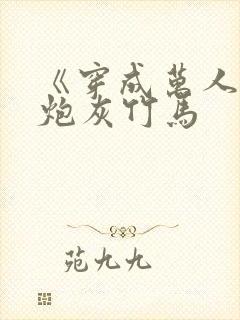 《穿成万人
炮灰竹马
苑九九